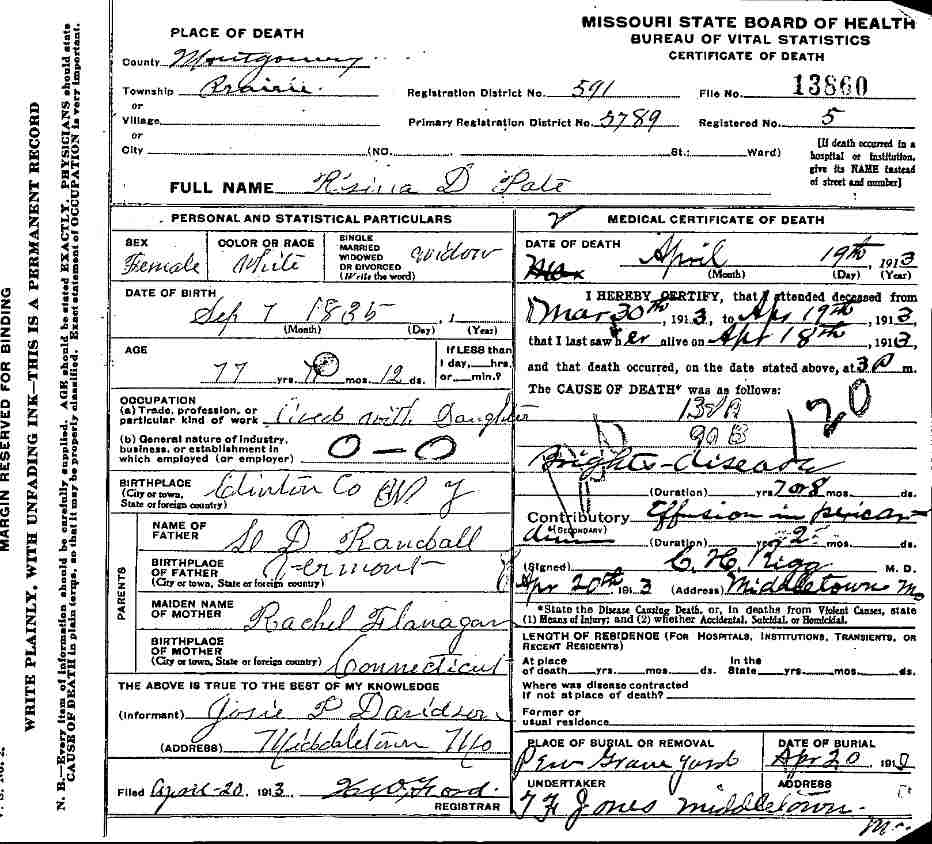 MISSOURI STATE BOARD OF HEALTH
BUREAU OF VITAL STATISTICS
CERTIFICATE OF DEATH
PLACE OF DEATH
County Montgomery
Township Prairie
or
Village
or
City (NO. St.; Ward)
Registration District No. 591 File No. 13860
Primary Registration District No. 5789 Registered No. 5
[If death occurred in a
hospital or institution,
give its NAME instead
of street and number]
FULL NAME D Pate
PERSONAL AND STATISTICAL PARTICULARS
SEX Female
COLOR OR RACE White
SINGLE
MARRIED
WIDOWED
OR DIVORCED
(Write the word) Widow
DATE OF BIRTH
Sep 7 1835, 1
(Month) (Day) (Year)
AGE
77 yrs. mos. 12 ds.
If LESS than
1 day, hrs.
or min.?
OCCUPATION
(a) Trade, profession, or
particular kind of work lived with Daughter
(b) General nature of industry,
business, or establishment in
which employed (or employer) 0 - 0
BIRTHPLACE
(City or town,
State or foreign country) Clinton Co N Y
PARENTS
NAME OF
FATHER D Randall
BIRTHPLACE
OF FATHER
(City or town, State or foreign country) Vermont
MAIDEN NAME
OF MOTHER Rachel Flanagan
BIRTHPLACE
OF MOTHER
(City or town, State or foreign country) Connecticut
THE ABOVE IS TRUE TO THE BEST OF MY KNOWLEDGE
(Informant) Josie P Davidson
(ADDRESS) Middletown Mo
Filed April-20, 1913 Ford
REGISTRAR
2 MEDICAL CERTIFICATE OF DEATH
DATE OF DEATH
April 19th, 1913
(Month) (Day) (Year)
I HEREBY CERTIFY, that I attended deceased from
Mar 30th, 1913, to Apr 19th, 1913,
that I last saw her alive on Apr 18th, 1913,
and that death occurred, on the date stated above, at 3 P m.
The CAUSE OF DEATH* was as follows:
120
90 B
Brights-disease
(Duration) yrs. 7 or 8 mos. ds.
Contributory Effusion in pericar-
dium (SECONDARY)
(Duration) yrs. 2 mos. ds.
(Signed) C. H. Rigg M. D.
Apr 20th, 1913 (Address) Middletown Mo
*State the Disease Causing Death, or, in deaths from Violent Causes, state
(1) Means of Injury; and (2) whether Accidental, Suicidal, or Homicidal.
LENGTH OF RESIDENCE (FOR HOSPITALS, INSTITUTIONS, TRANSIENTS, OR
RECENT RESIDENTS)
At place In the
of death yrs. mos. ds. State yrs. mos. ds.
Where was disease contracted
if not at place of death?
Former or
usual residence
PLACE OF BURIAL OR REMOVAL DATE OF BURIAL
Grave yard Apr 20 191
UNDERTAKER ADDRESS
Jones Middletown
Mo.
MARGIN RESERVED FOR BINDING
WRITE PLAINLY, WITH UNFADING INK—THIS IS A PERMANENT RECORD
N. B.—Every item of information should be carefully supplied. AGE should be stated EXACTLY. PHYSICIANS should state
CAUSE OF DEATH in plain terms, so that it may be properly classified. Exact statement of OCCUPATION is very important.